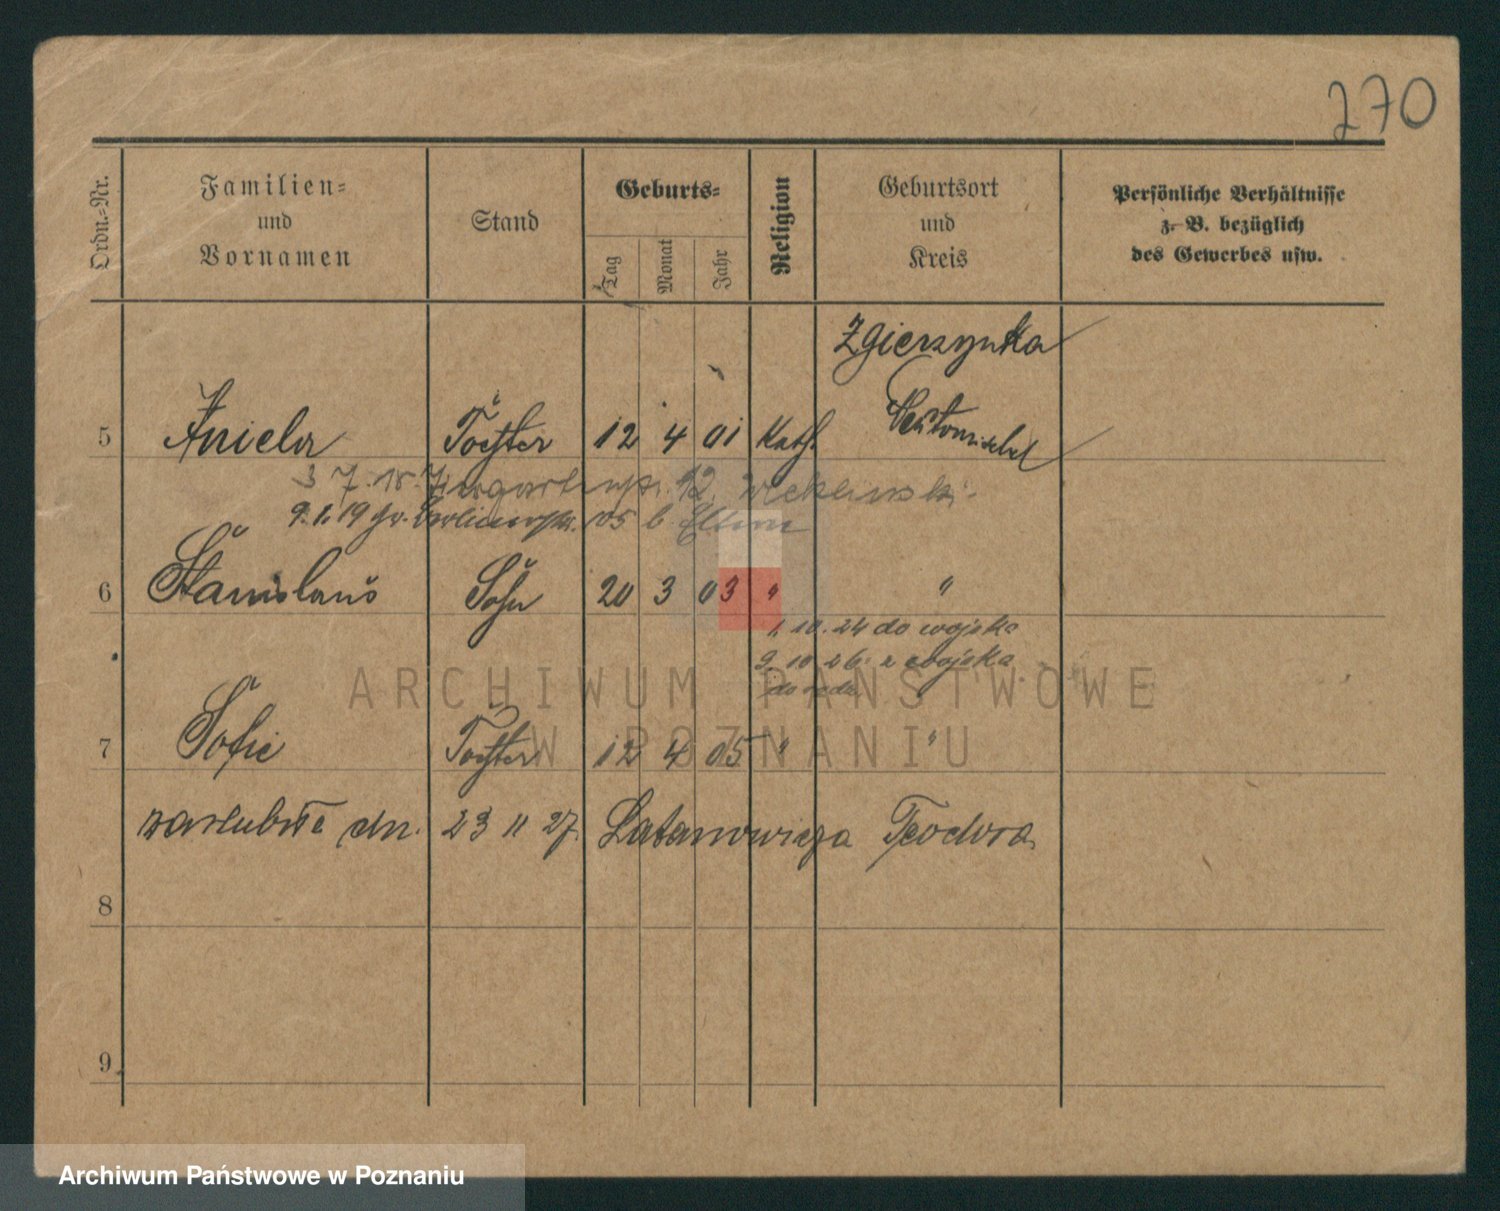 270
Ordn.-Nr.
Familien- und Vornamen
Stand
Geburts-
Tag
Monat
Jahr
Religion
Geburtsort und Kreis
Persönliche Verhältnisse z. B. bezüglich des Gewerbes usw.
Zgierzynka
5 Aniela Tochter 12 4 01 Kath.
3 7. 18. 12
9. 1. 19 05 b. Eltern
6 Stanislaus Sohn 20 3 03 " "
1. 10. 24 do wojska
9. 10 26 z wojska
7 Sofie Tochter 12 4 05 " "
zaślubiła dn. 23 11 27. Teodora
8
9
ARCHIWUM PAŃSTWOWE
W POZNANIU
Archiwum Państwowe w Poznaniu